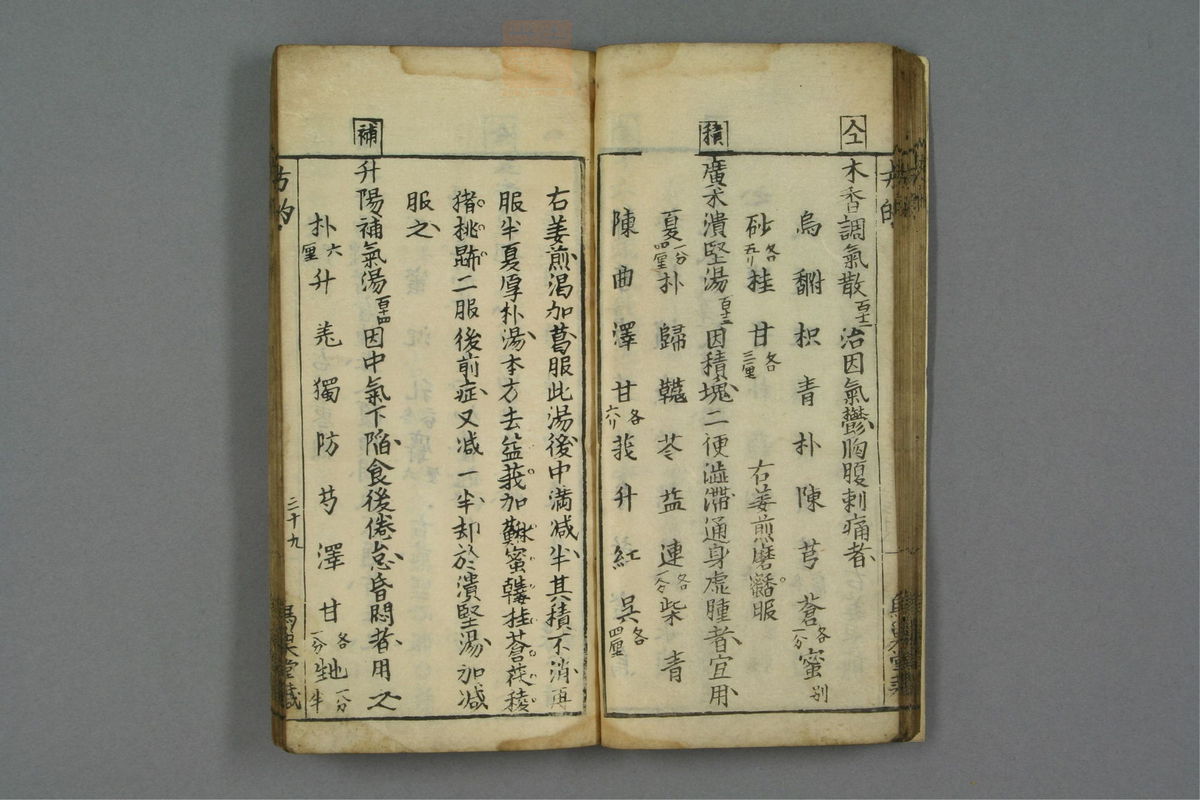 木香調氣散 百十二 治因氣鬱胸腹刺痛者
烏 附 枳 青 朴 陳 芎 蒼 各一分 蜜 别
砂 各五リ 桂 甘 各三厘 右姜煎磨 服
積
廣朮潰堅湯 百十三 因積塊二便澁滯通身虚腫者宜用
夏 一分四厘 朴 歸 苓 益 連 各一分 柴 青
陳 曲 澤 甘 各六リ 莪 升 紅 吳 各四厘
右姜煎渇加葛服此湯後中滿减半其積不消再
服半夏厚朴湯本方去益莪加 蜜 桂蒼茯稜
猪桃 二服後前症又减一半却於潰堅湯加减
服之
補
升陽補氣湯 百十四 因中氣下陥食後倦怠昏悶者用之
朴 六厘 升 羌 獨 防 芍 澤 甘 各一分 一分半
二十九